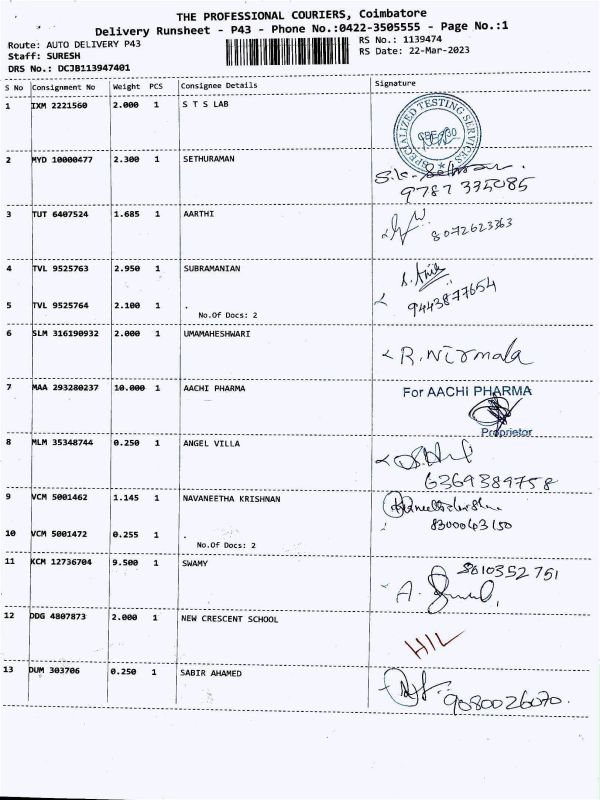 THE PROFESSIONAL COURIERS, Coimbatore
Delivery Runsheet - P43 - Phone No.:0422-3505555 - Page No.:1
Route: AUTO DELIVERY P43
Staff: SURESH
DRS No.: DCJB113947401
RS No.: 1139474
RS Date: 22-Mar-2023
S No Consignment No Weight PCS Consignee Details Signature
1 IXM 2221560 2.000 1 S T S LAB
SPECIALIZED TESTING SERVICES
2 MYD 10000477 2.300 1 SETHURAMAN
9787 335085
3 TUT 6407524 1.685 1 AARTHI
8072623363
4 TVL 9525763 2.950 1 SUBRAMANIAN
9443877654
5 TVL 9525764 2.100 1 .
No.Of Docs: 2
6 SLM 316190932 2.000 1 UMAMAHESHWARI
R. Nirmala
7 MAA 293280237 10.000 1 AACHI PHARMA
For AACHI PHARMA
Proprietor
8 MLM 35348744 0.250 1 ANGEL VILLA
6369389758
9 VCM 5001462 1.145 1 NAVANEETHA KRISHNAN
8300063150
10 VCM 5001472 0.255 1 .
No.Of Docs: 2
11 KCM 12736704 9.500 1 SWAMY
8610352751
12 DDG 4807873 2.000 1 NEW CRESCENT SCHOOL
HIL
13 DUM 303706 0.250 1 SABIR AHAMED
9080026070.